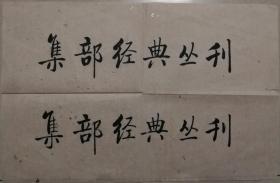 集部经典丛刊
集部经典丛刊